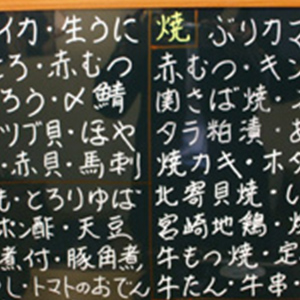 イカ・生うに
とろ・赤むつ
ろう・〆鯖
ツブ貝・ほや
・赤貝・馬刺
・とろりゆば
ポン酢・天豆
煮付・豚角煮
し・トマトのおでん
焼 ぶりカマ
赤むつ・キン
関さば焼・
タラ粕漬・
焼カキ・ホタ
北寄貝焼・い
宮崎地鶏・焼
牛もつ焼・定
牛たん・牛串・